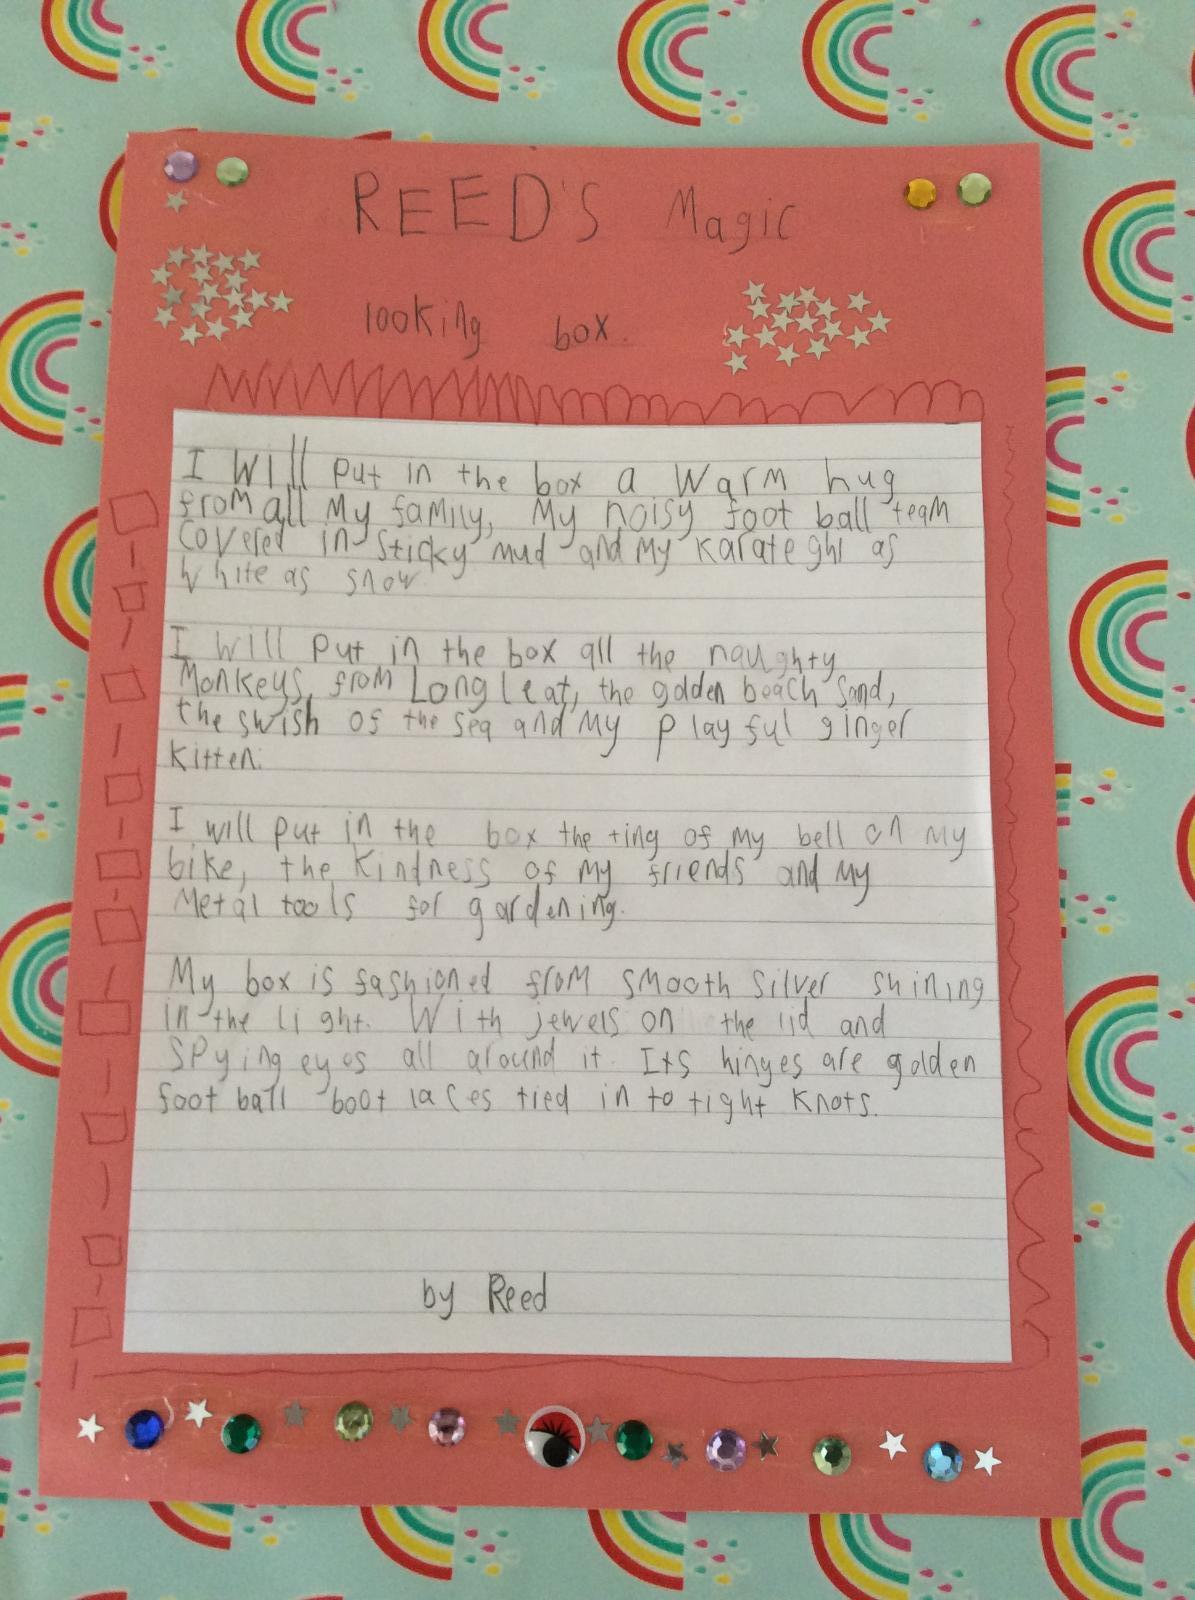 REED'S Magic
looking box.
I will put in the box a warm hug
from all my family, my noisy foot ball team
covered in sticky mud and my karate ghi as
white as snow
I will put in the box all the naughty
monkeys, from Longleat, the golden beach sand,
the swish of the sea and my playful ginger
kitten.
I will put in the box the ting of my bell on my
bike, the kindness of my friends and my
metal tools for gardening.
My box is fashioned from smooth silver shining
in the light. With jewels on the lid and
spying eyes all around it. Its hinges are golden
foot ball boot laces tied in to tight knots.
by Reed